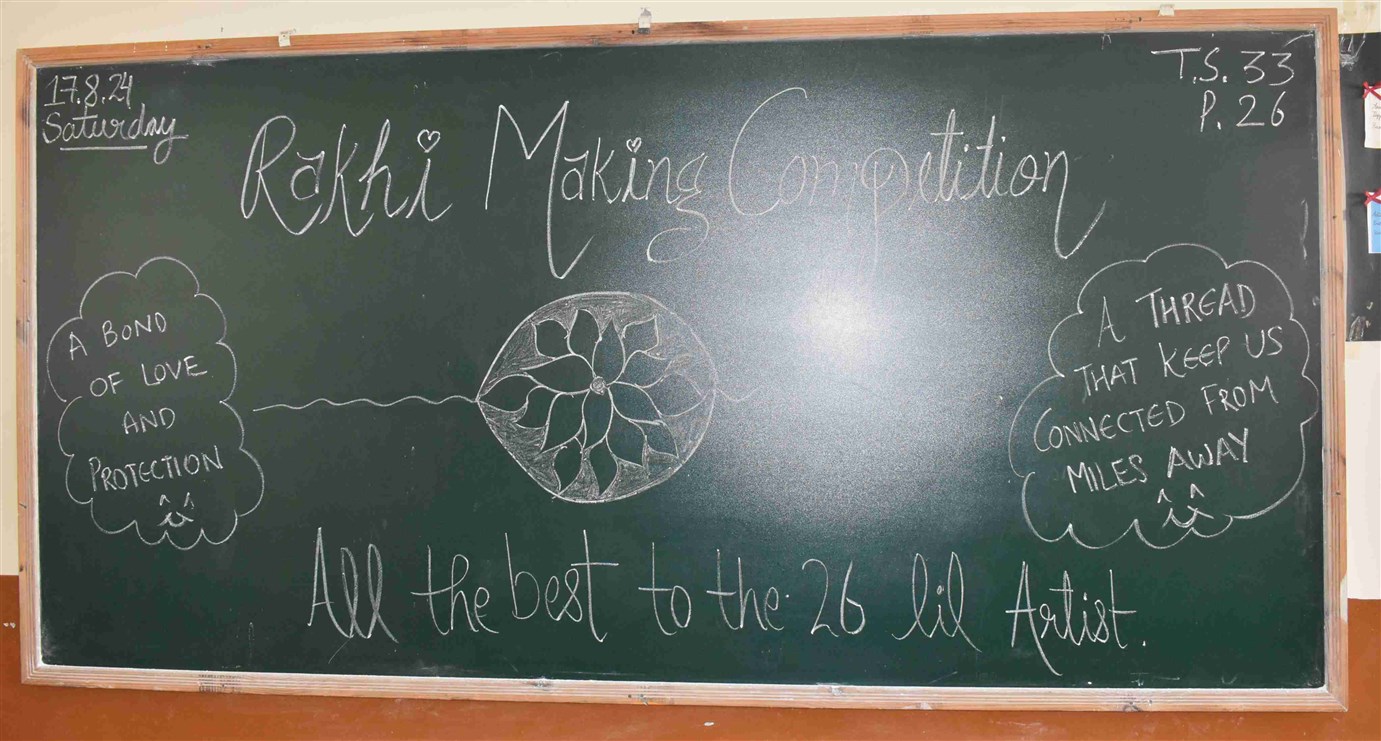 17.8.24
Saturday
T.S. 33
P. 26
Rakhi Making Competition
A BOND
OF LOVE
AND
PROTECTION
A THREAD
THAT KEEP US
CONNECTED FROM
MILES AWAY
All the best to the 26 lil Artist.